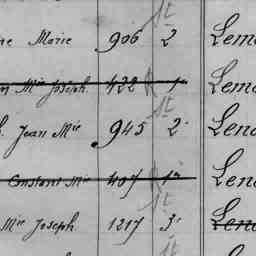 Marie 906 2 Lem
Mie Joseph. 422 1 Lem
Jean Mie 945 2 Len
Constant Mie 407 1 Len
Mie Joseph 1217 3 Len